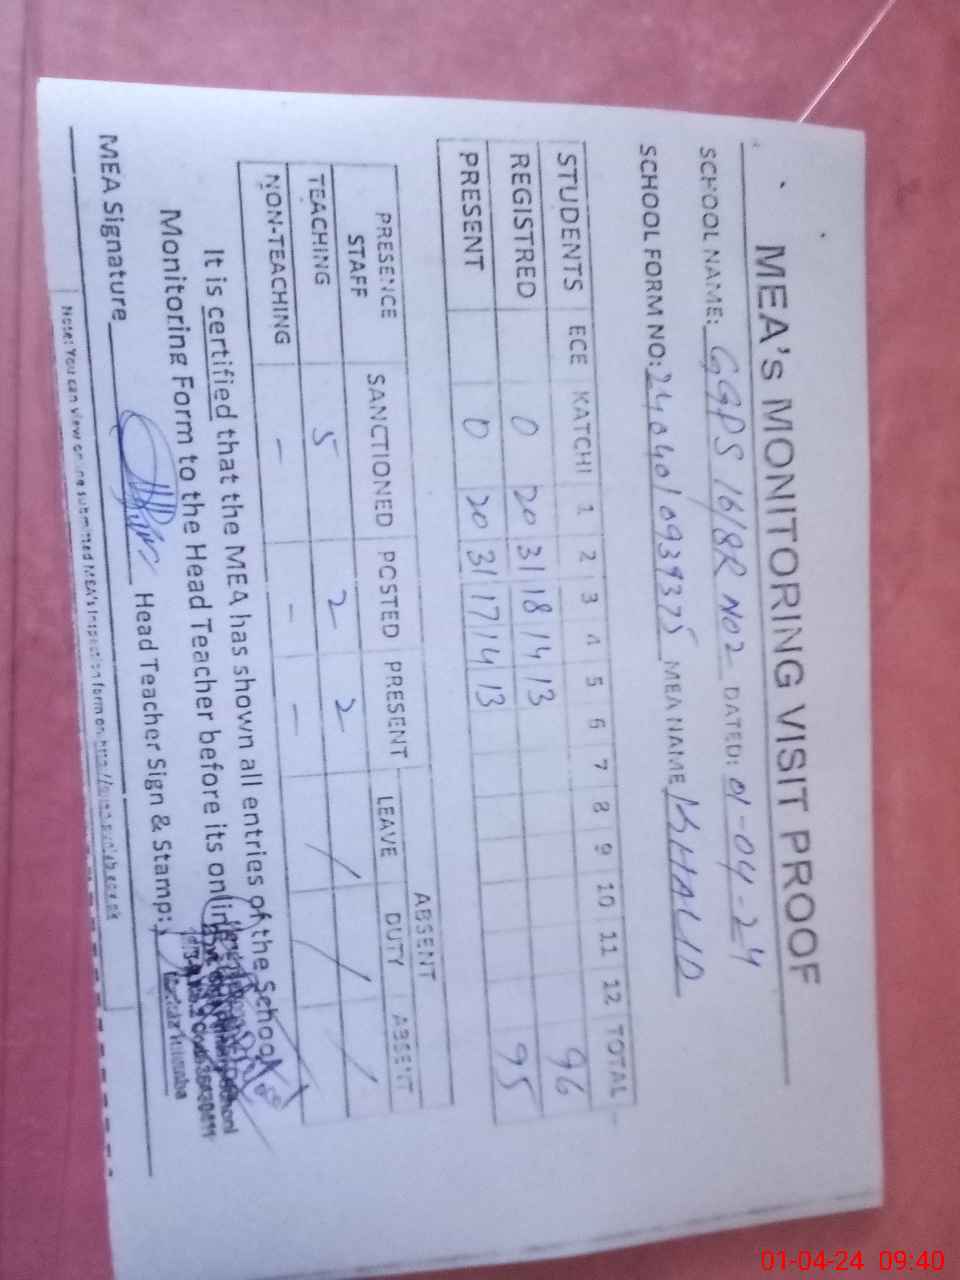 MEA'S MONITORING VISIT PROOF
SCHOOL NAME: GGPS 16/8R NO2 DATED: 01-04-24
SCHOOL FORM NO: MEA NAME KHALID
STUDENTS ECE KATCHI 1 2 3 4 5 6 7 8 9 10 11 12 TOTAL
REGISTRED 0 20 31 18 14 13 96
PRESENT 0 20 31 17 14 13 95
PRESENCE ABSENT
STAFF SANCTIONED POSTED PRESENT LEAVE DUTY ABSENT
TEACHING 5 2 2 / / /
NON-TEACHING - - -
It is certified that the MEA has shown all entries of the School
Monitoring Form to the Head Teacher before its online
MEA Signature Head Teacher Sign & Stamp:
Note: You can view online submitted MEA's Inspection form on
01-04-24 09:40